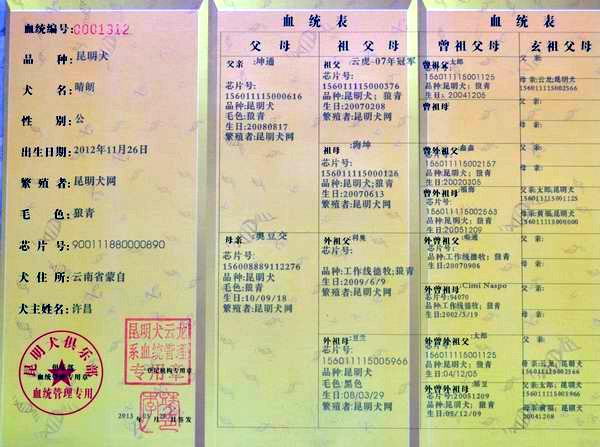 血统编号: 0001312
品种: 昆明犬
犬名: 晴朗
性别: 公
出生日期: 2012年11月26日
繁殖者: 昆明犬网
毛色: 狼青
芯片号: 900111880000890
犬住所: 云南省蒙自
犬主姓名: 许昌
昆明犬俱乐部
血统管理专用章
血统管理专用
昆明犬云龙
系血统管理
专用章
登记机构专用章
血统表
父母
父亲:坤通
芯片号:
156011115000616
品种:昆明犬
毛色:狼青
生日:20080817
繁殖者:昆明犬网
母亲:奥豆交
芯片号:
156008889112276
品种:昆明犬
毛色:狼青
生日:10/09/18
繁殖者:昆明犬网
祖父母
祖父:云虎-07年冠军
芯片号:
156011115000376
品种:昆明犬;狼青
生日:20070208
繁殖者:昆明犬网
祖母:海坤
芯片号:
156011115000126
品种:昆明犬;狼青
生日:20070613
繁殖者:昆明犬网
外祖父:
芯片号:
品种:工作线德牧;狼青
生日:2009/6/9
繁殖者:昆明犬网
外祖母:豆兰
芯片号:
156011115005966
品种:昆明犬
毛色:黑色
生日:08/03/29
繁殖者:昆明犬网
血统表
曾祖父母
曾祖父:太郎
芯片号:
156011115001125
品种:昆明犬;狼青
生日:20041206
曾祖母
曾外祖父:鑫鑫
芯片号:
156011115002157
品种:昆明犬;狼青
生日:20020305
曾外祖母:
芯片号:
156011115002563
品种:昆明犬;狼青
生日:20051209
外曾祖父:
芯片号:
品种:工作线德牧;狼青
生日:20070906
外曾祖母:Cimi Naspo
芯片号:94070
品种:工作线德牧;狼青
生日:2002/5/19
外曾外祖父:太郎
芯片号:
156011115001125
品种:昆明犬;狼青
生日:04/12/05
曾外曾祖母:
芯片号:20051209
品种:昆明犬;狼青
生日:05/12/09
玄祖父母
父亲:
母亲:云龙;昆明犬
156011115002566
父亲:
母亲:
父亲:
母亲:
父亲:太郎;昆明犬
156011115001125
母亲:黄福;昆明犬
20041205
父亲:
母亲:
父亲:
母亲:
父亲:
母亲:云龙;昆明犬
156011115002566
父亲:太郎;昆明犬
156011115001125
母亲:黄福;昆明犬
20041205